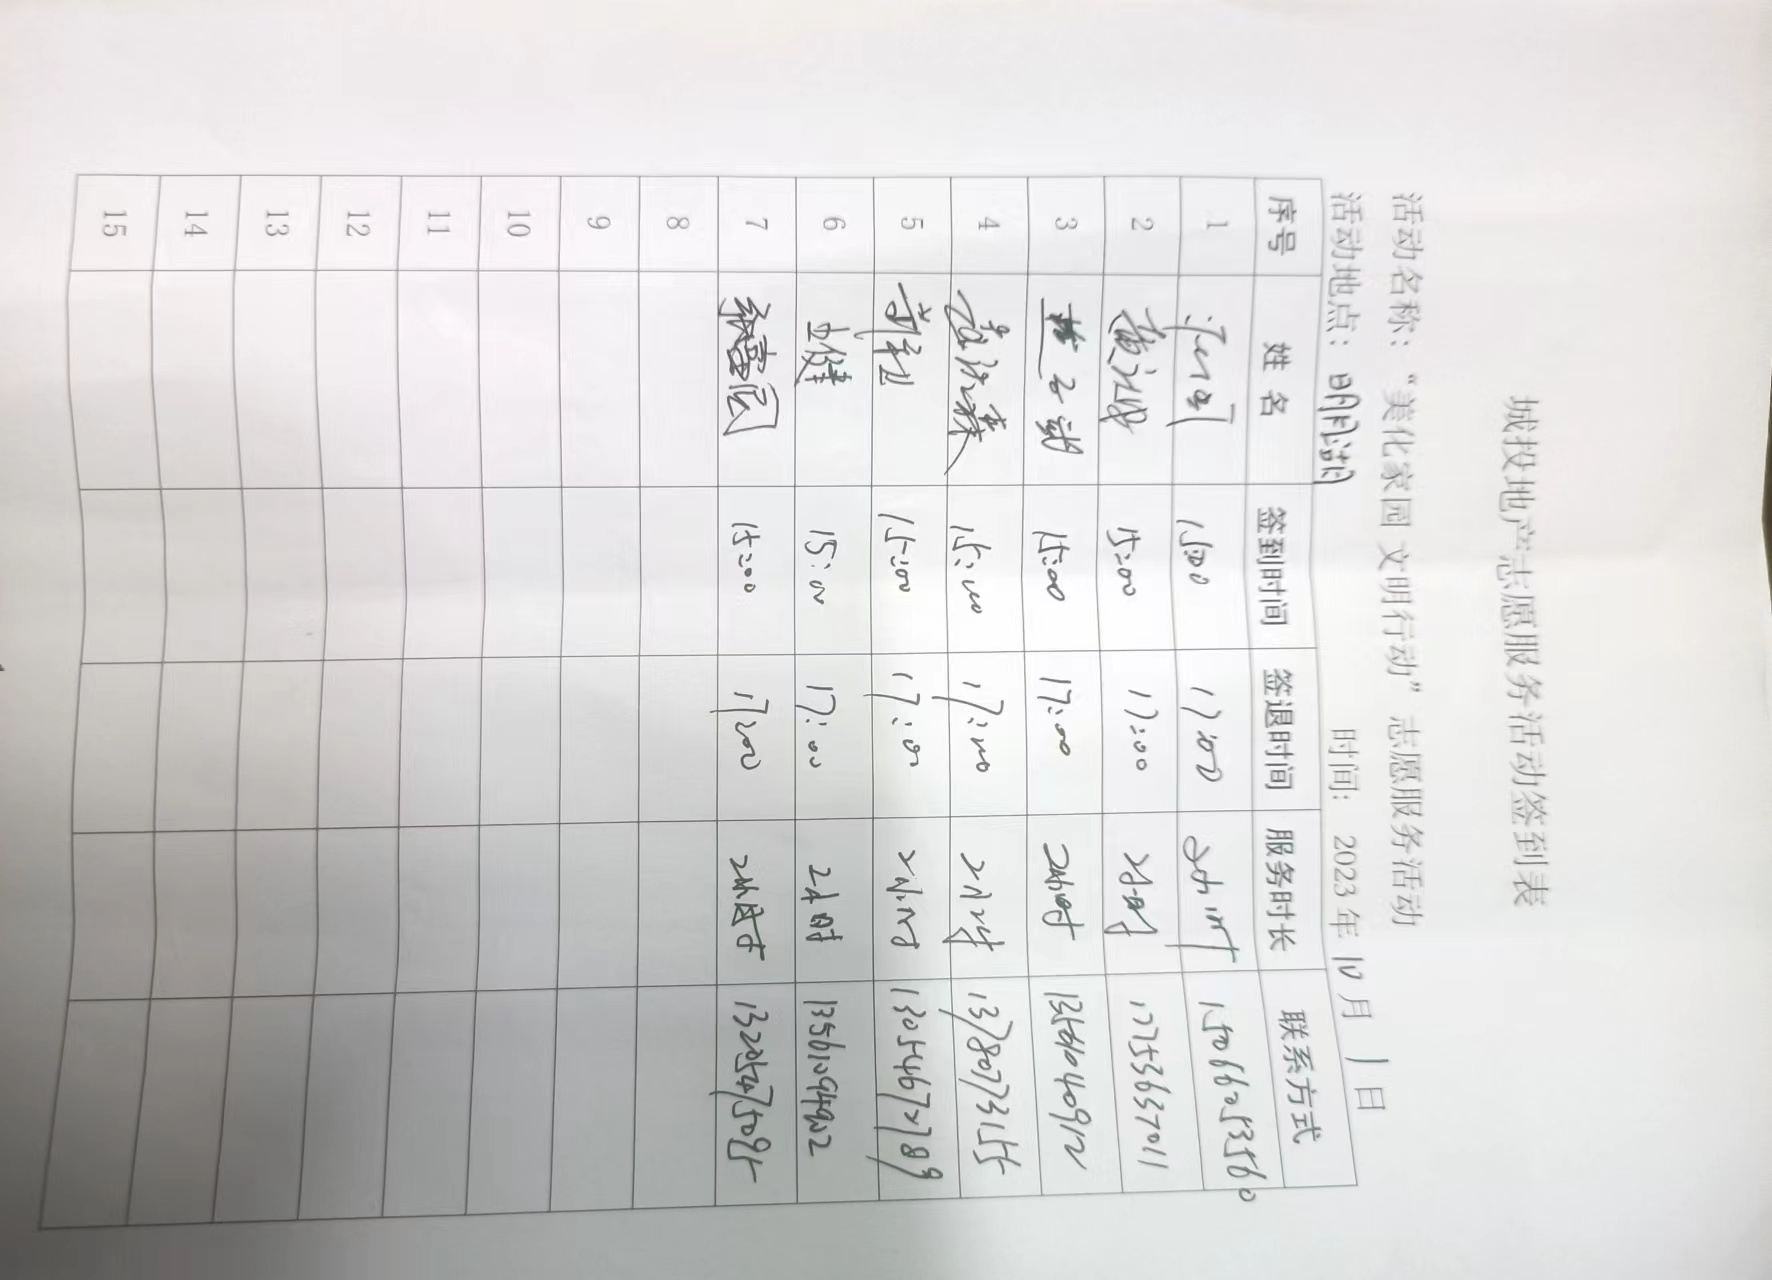 城投地产志愿服务活动签到表
活动名称：“美化家园 文明行动”志愿服务活动
活动地点：明月湖 时间：2023年10月1日
序号 姓名 签到时间 签退时间 服务时长 联系方式
1 15:00 17:00 2小时 15066253560
2 15:00 17:00 2小时 17753637011
3 15:00 17:00 2小时
4 15:00 17:00 2小时 13780773155
5 15:00 17:00 2小时 13054672789
6 15:00 17:00 2小时 13561094902
7 15:00 17:00 2小时
8
9
10
11
12
13
14
15